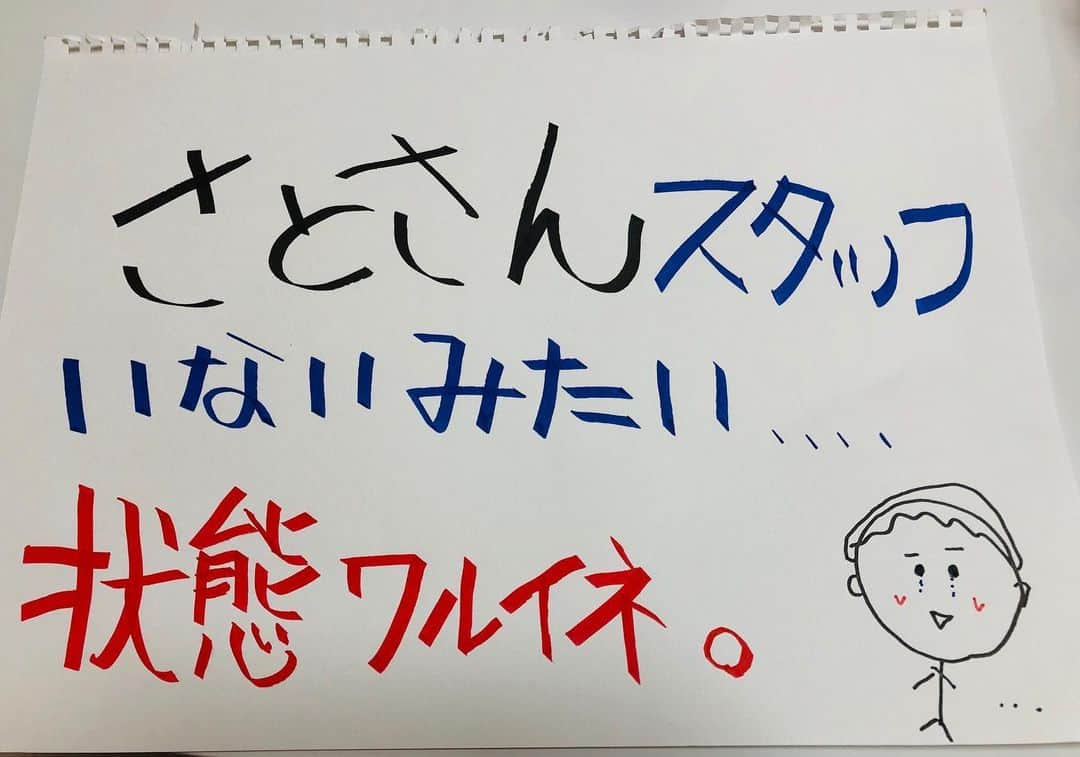 さとさんスタッフ
いないみたい、、、、
状態ワルイネ。
...